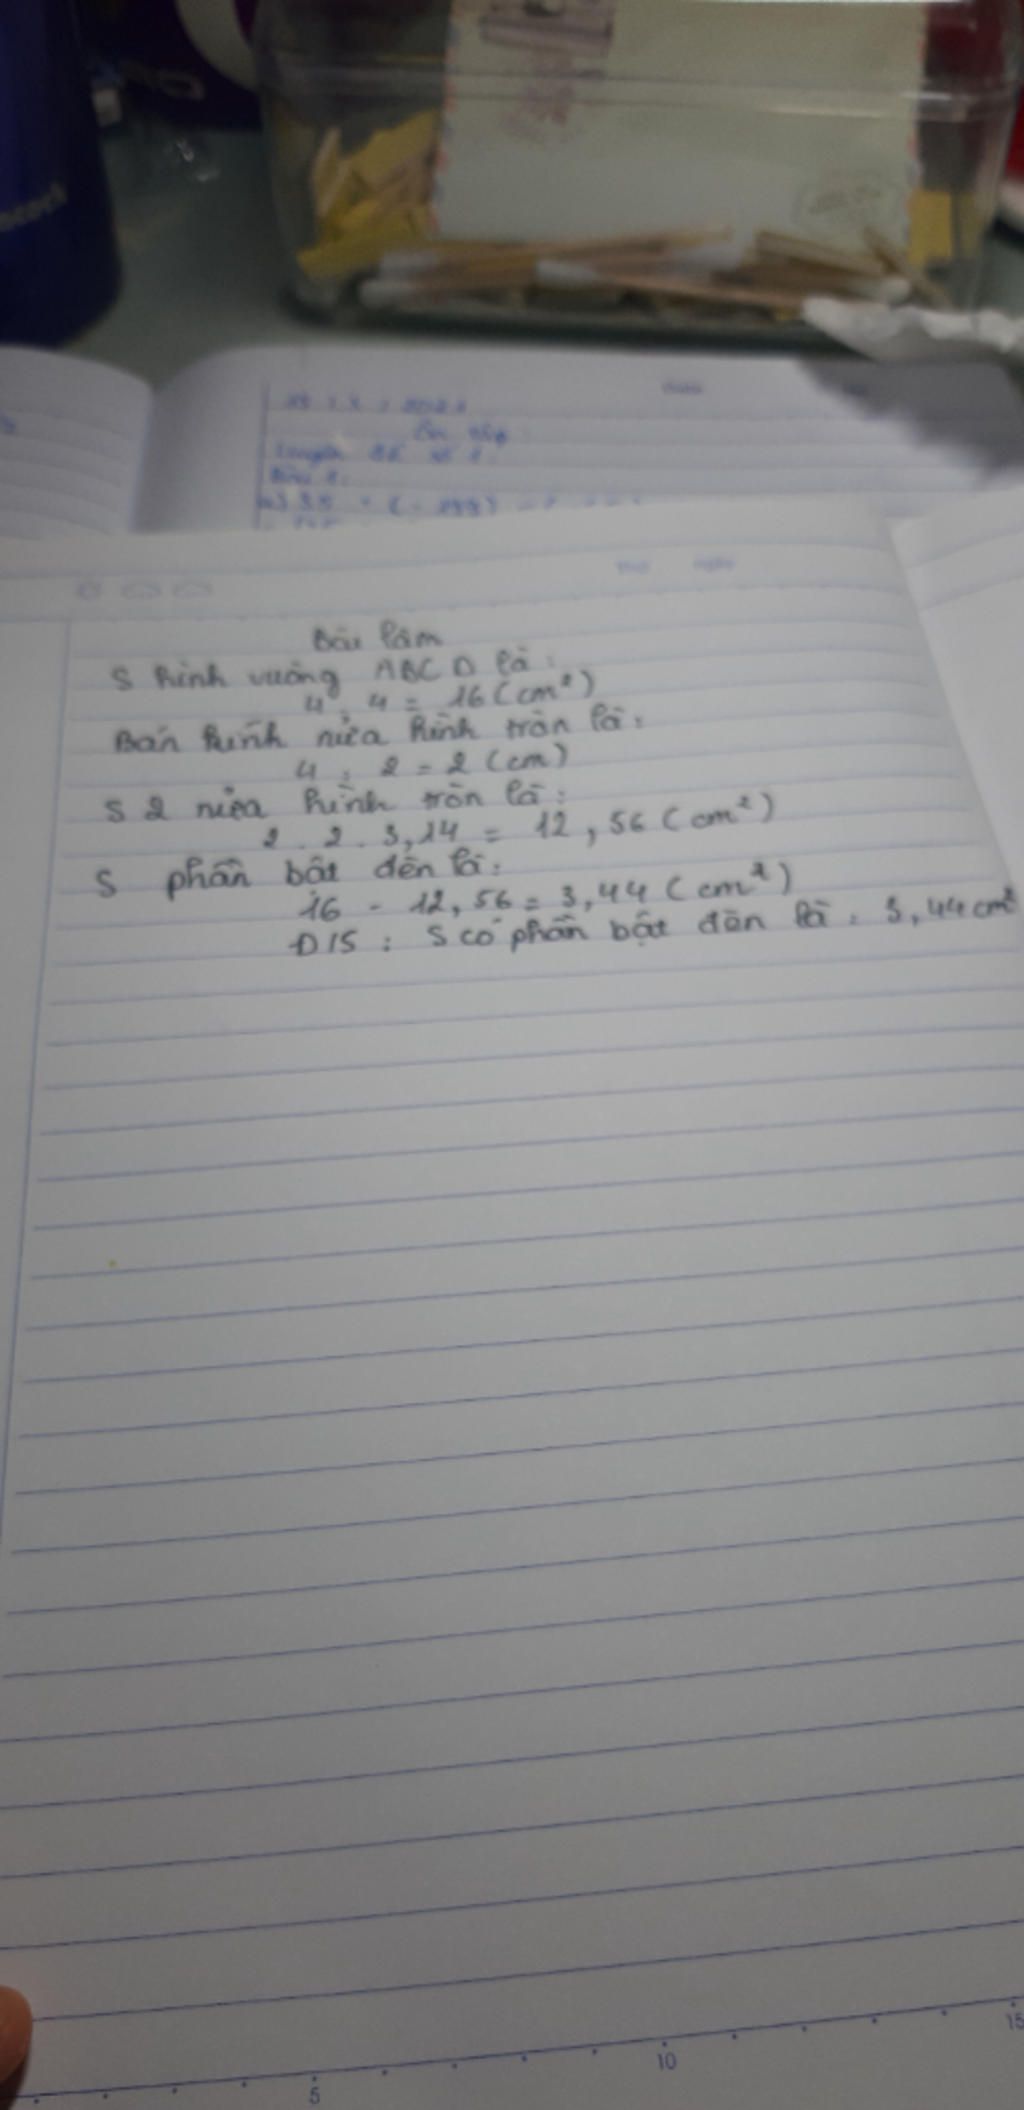 Bài làm
S hình vuông ABCD là:
4.4 = 16 (cm²)
Bán kính nửa hình tròn là:
4 : 2 = 2 (cm)
S 2 nửa hình tròn là:
2.2.3,14 = 12,56 (cm²)
S phần bật đèn là:
16 - 12,56 = 3,44 (cm²)
Đ/S: S có phần bật đèn là: 3,44cm²
5
10
15